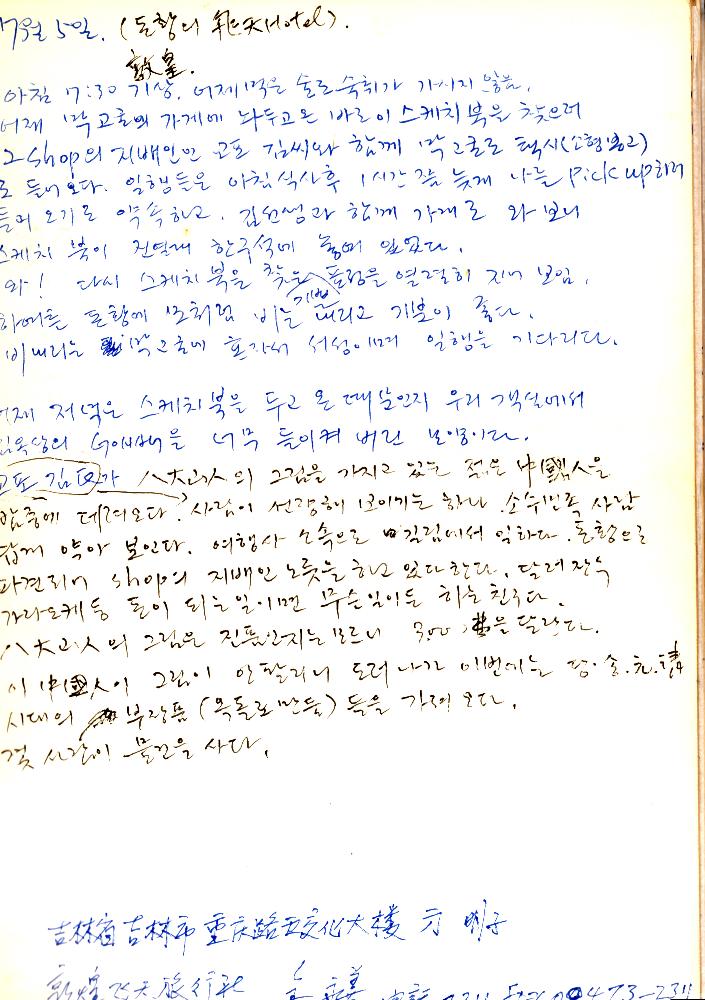 7월 5일. (돈황의 飛天Hotel).
敦煌.
아침 7:30 기상. 어제 먹은 술로 숙취가 가시지 않음.
어제 막고굴의 가게에 놔두고 온 바로 이 스케치북을 찾으러
그 shop의 지배인인 교포 김씨와 함께 막고굴로 택시(소형봉고)
로 들어오다. 일행들은 아침식사후 1시간쯤 늦게 나를 pick up하러
들어 오기로 약속하고. 김선생과 함께 가게로 와 보니
스케치 북이 진열대 한구석에 놓여 있었다.
와! 다시 스케치북을 찾은 기쁨을 열렬히 지어 보임.
하여튼 돈황에 모처럼 비는 내리고 기분이 좋다.
비내리는 막고굴에 혼자서 서성이며 일행을 기다리다.
어제 저녁은 스케치북을 두고 온 때문인지 우리 객실에서
너무 들이켜 버린 모양이다.
교포 김氏가 八大山人의 그림을 가지고 있는 젊은 中國人을
밤중에 데려오다. 사람이 선량해 보이기는 하나 소수민족 사람
답게 약아 보인다. 여행사 소속으로 길림에서 일하다 돈황으로
파견되어 shop의 지배인 노릇을 하고 있다 한다. 달러장수
가라오케등 돈이 되는 일이면 무슨일이든 하는 친구다.
八大山人의 그림은 진품인지는 모르나 300弗을 달란다.
이 中國人이 그림이 안팔리니 도려 나가 이번에는 당·송·元·淸
시대의 부장품 (옥돌로 만든) 등을 가져 오다.
몇 사람이 물건을 사다.
吉林省吉林市 重庆路 文化大楼 方 明子
敦煌飞天旅行社 金 473-2311